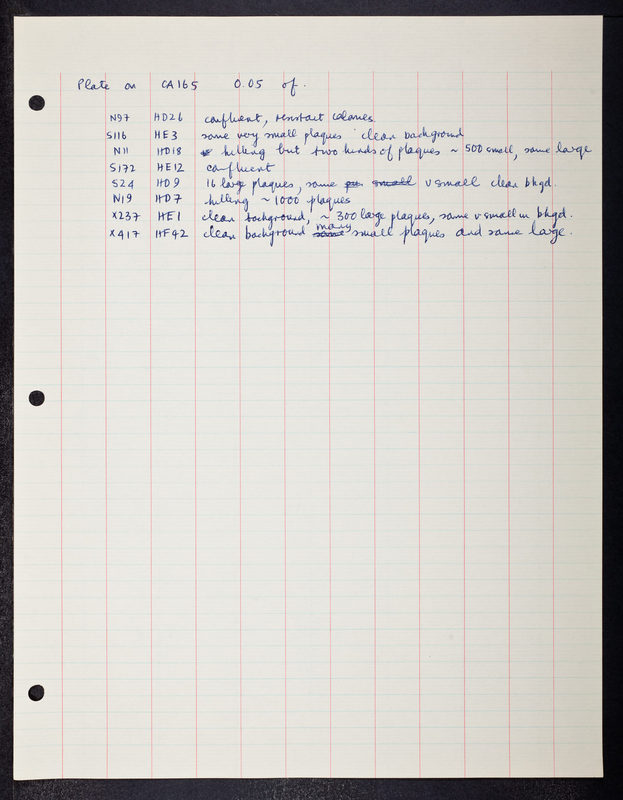 Plate on CA165 0.05 of.
N97 HD26 confluent, resistant colonies
S116 HE3 some very small plaques clean background
N11 HD18 killing but two kinds of plaques ~ 500 small, some large
S172 HE12 confluent
S24 HD9 16 large plaques, some small v small clean bkgd.
N19 HD7 killing ~ 1000 plaques
X237 HE1 clean background, ~ 300 large plaques, some v small in bkgd.
X417 HF42 clean background some many small plaques and some large.